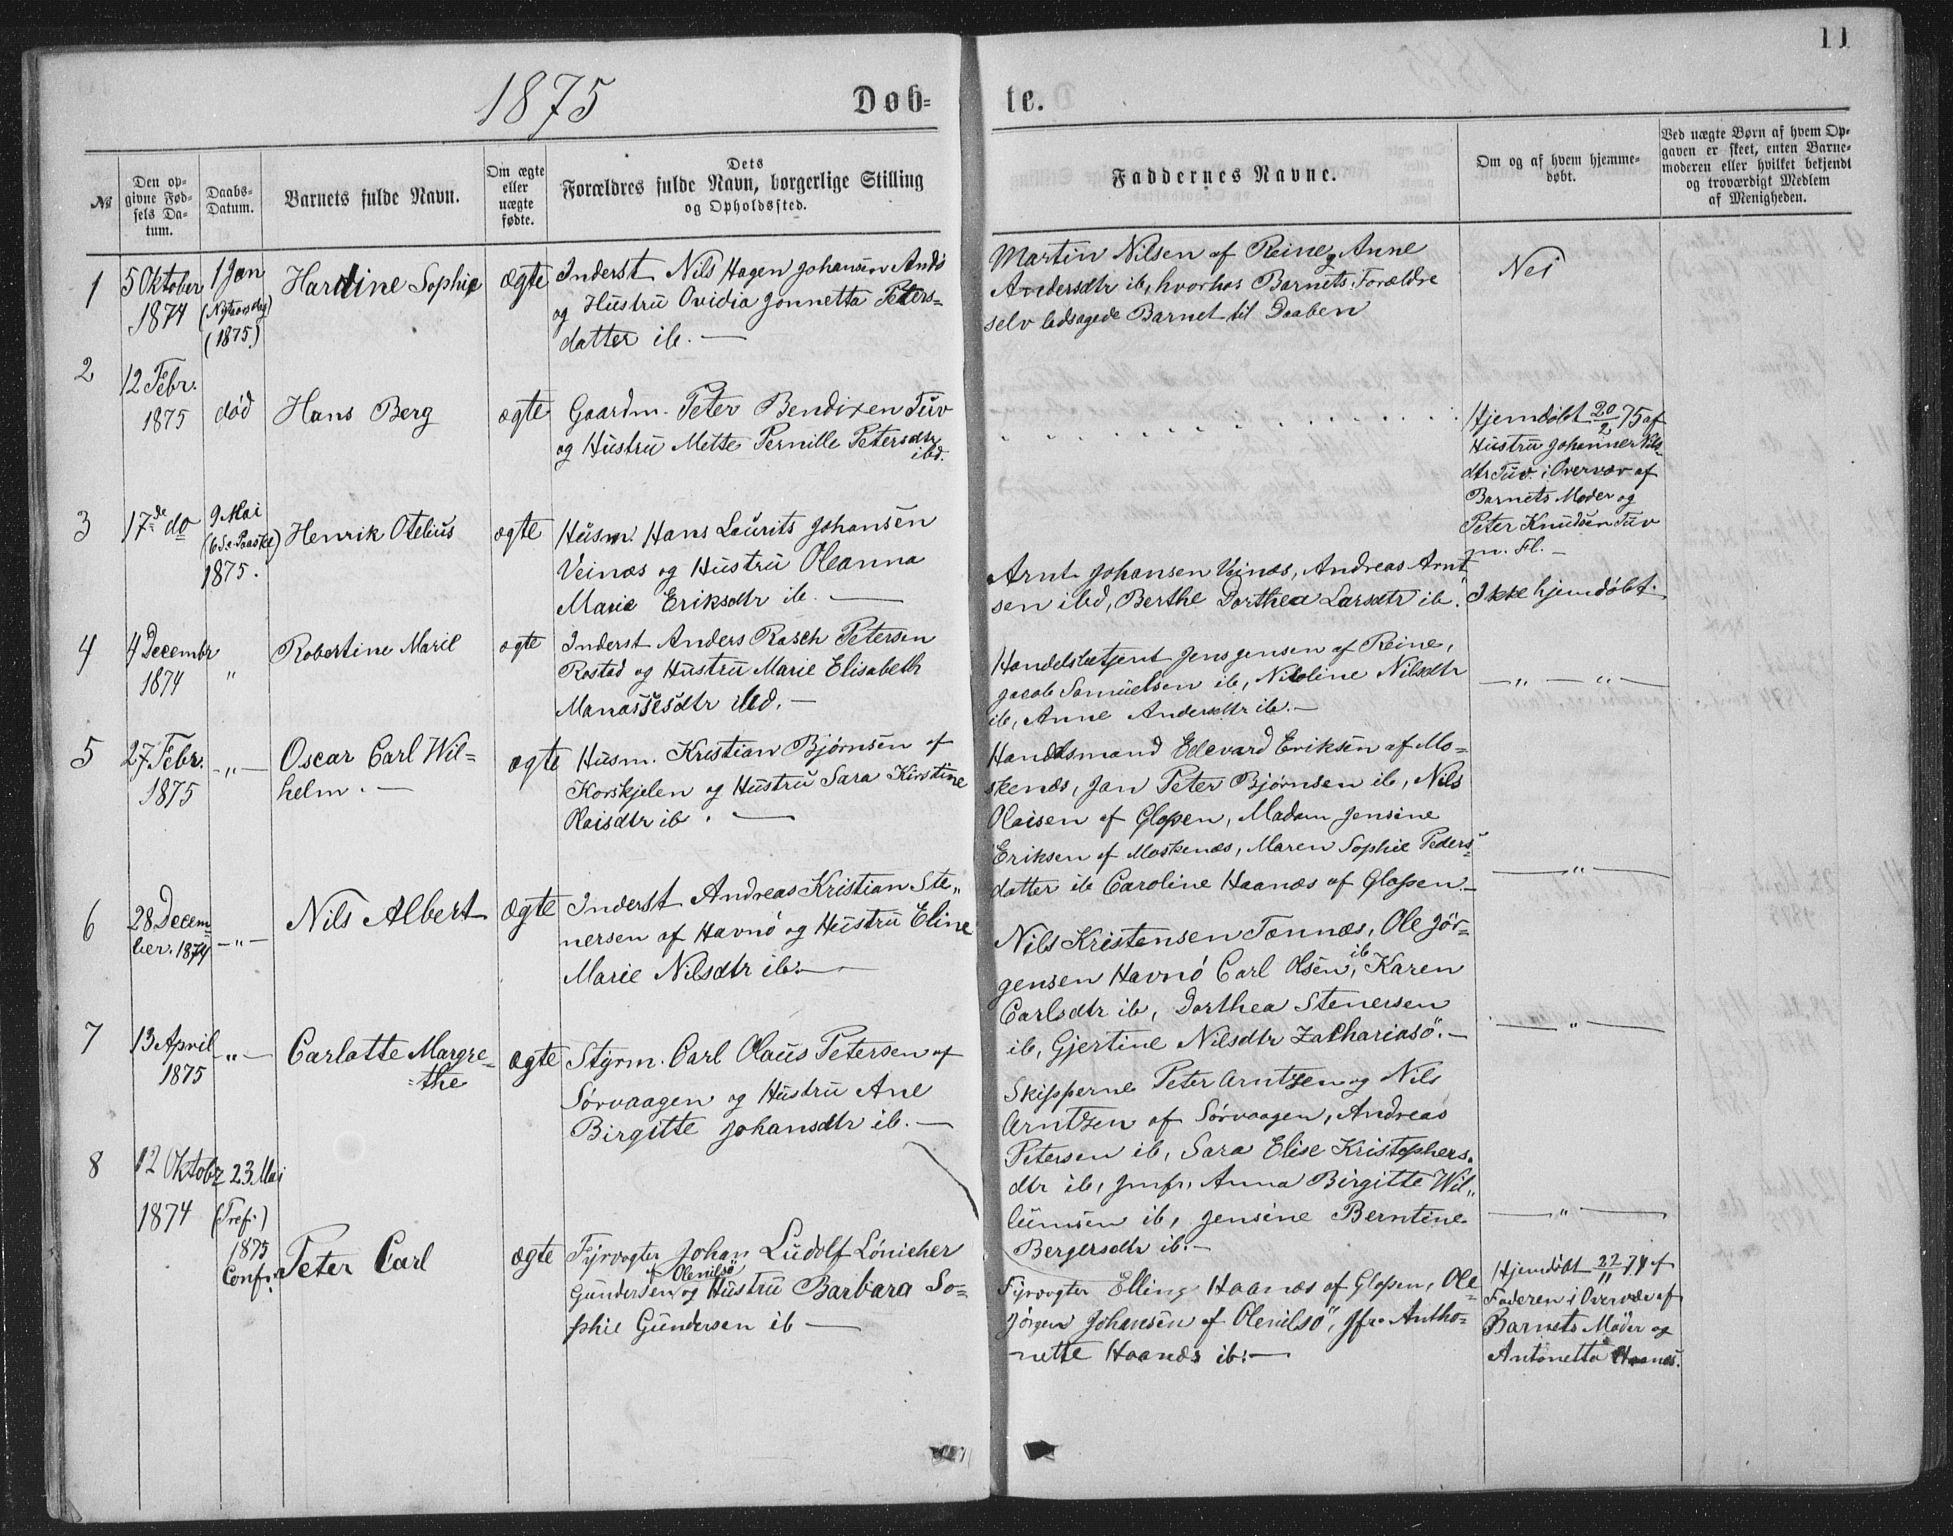 11
1875
Døb-
te.
№
Den op-
givne Fød-
sels Da-
tum.
Daabs-
Datum.
Barnets fulde Navn.
Om ægte
eller
uægte
fødte.
Dets
Forældres fulde Navn, borgerlige Stilling
og Opholdssted.
Faddernes Navne.
Om og af hvem hjemme-
døbt.
Ved uægte Børn af hvem Op-
gaven er skeet, enten Barne-
moderen eller hvilket bekjendt
og troværdigt Medlem
af Menigheden.
1
5 Oktober
1874
1 Jan
(Nytaarsdag)
(1875)
Hardine Sophie
ægte
Inderst Nils Hagen Johansen Andö
og Hustru Ovidia Jonnetta Peters-
datter ib. —
Martin Nilsen af Reine, Anne
Andersdtr ib, hvorhos Barnets Forældre
selv ledsagede Barnet til Daaben
Nei
2
12 Febr.
1875
død
Hans Berg
ægte
Gaardm. Peter Bendixen Tuv
og Hustru Mette Pernille Petersdtr
ibd.
Hjemdöbt 20/2 75 af
Hustru Johanne Nils-
dtr Tuv i Overvær af
Barnets Moder og
Peter Knudsen Tuv
m. Fl. —
3
17de do
9 Mai
(6 S. e. Paaske)
1875.
Henrik Otelius
ægte
Husm. Hans Laurits Johansen
Veinæs og Hustru Oleanna
Marie Eriksdtr ib. —
Arnt Johansen Veinæs, Andreas Arnt
sen ibd, Berthe Dorthea Larsdtr ib.
Ikke hjemdöbt.
4
4 Decembr
1874
"
Robertine Maril
ægte
Inderst Anders Rasch Petersen
Rostad og Hustru Marie Elisabeth
Manassesdtr ibd. —
Handelsbetjent Jens Jensen af Reine,
Jacob Samuelsen ib, Nikoline Nilsdtr
ib, Anne Andersdtr ib. —
— " — " —
5
27 Febr.
1875
— " —
Oscar Carl Wil-
helm. —
ægte
Husm. Kristian Bjørnsen af
Korskjelen og Hustru Sara Kirstine
Olaisdtr ib. —
Handelsmand Edevard Eriksen af Mo-
skenæs, Jan Peter Bjørnsen ib, Nils
Olaisen af Glopen, Madam Jensine
Eriksen af Moskenæs, Maren Sophie Peders-
datter ib Caroline Haanæs af Glopen —
— " —
6
28 Decem-
ber. 1874
— " —
Nils Albert
ægte
Inderst Andreas Kristian Ste-
nersen af Havnö og Hustru Eline
Marie Nilsdtr ib. —
Nils Kristensen Tennæs, Ole Jör-
gensen Havnö Carl Olsen ib, Karen
Carlsdtr ib, Dorthea Stenersen
ib, Gjertine Nilsdtr Zachariasö. —
— " —
7
13 April
1875
— " —
Carlotte Margre-
the
ægte
Styrm. Carl Olaus Petersen af
Sörvaagen og Hustru Ane
Birgitte Johansdtr ib. —
Skipperne Peter Arntzen og Nils
Arntzen af Sörvaagen, Andreas
Petersen ib, Sara Elise Kristophers-
dtr ib, Jmfr. Anna Birgitte Wil-
lumsen ib, Jensine Berntine
Bergersdtr ib. —
— " —
8
12 Oktobr
1874
23 Mai
(Tref.)
1875
Conf.
Peter Carl
ægte
Fyrvogter Johan Ludolf Lönicher
Gundersen af Olenilsö og Hustru Barbara So-
phie Gundersen ib —
Fyrvogter Elling Haanæs af Glopen, Ole
Jörgen Johansen af Olenilsö, Jfr. Antho-
nette Haanæs ib. —
Hjemdöbt 22/11 74 af
Faderen i Overvær af
Barnets Moder og
Antonetta Haanæs.